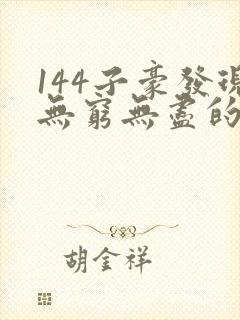 144子豪發現
無窮無盡的
胡金祥